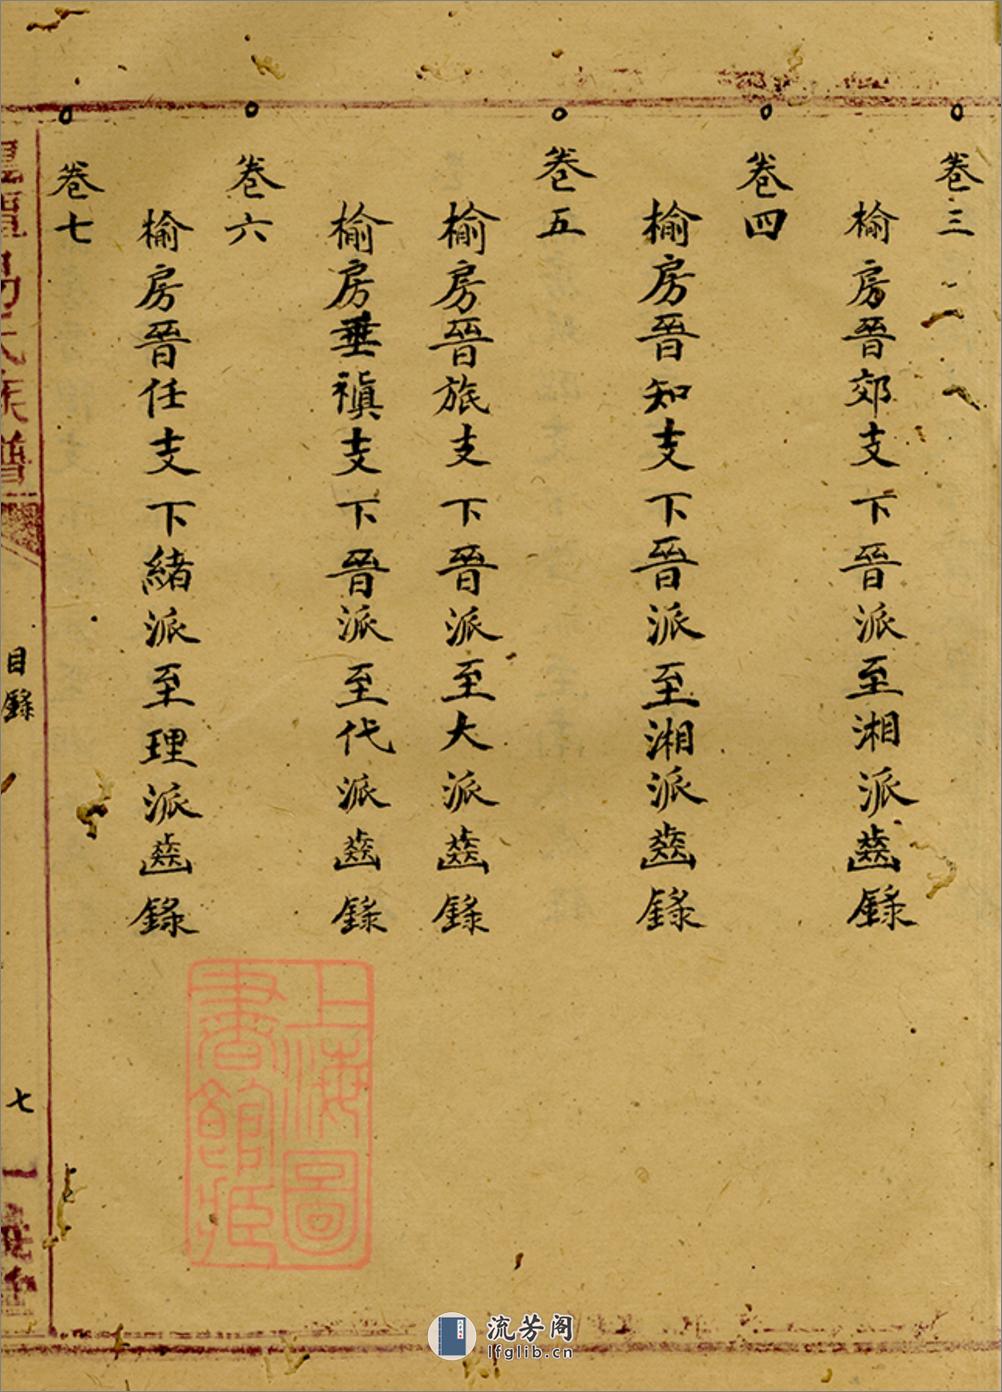 卷三
榆房晉郊支下晉派至湘派齒錄
卷四
榆房晉知支下晉派至湘派齒錄
卷五
榆房晉旅支下晉派至大派齒錄
榆房垂禛支下晉派至代派齒錄
卷六
榆房晉任支下緒派至理派齒錄
卷七
氏族譜
目錄
七
上海圖書館藏
流芳阁
lfglib.cn